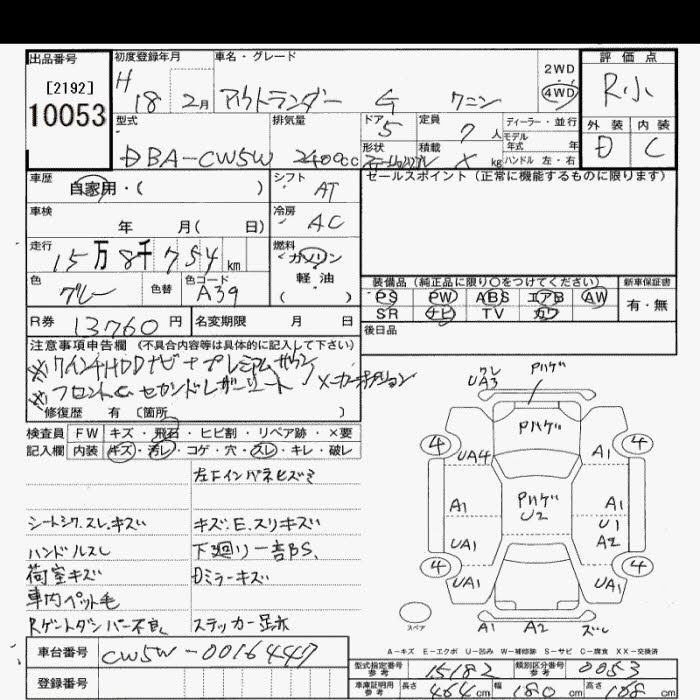 出品番号
[2192]
10053
初度登録年月
H 18 2月
車名・グレード
アウトランダー G 7ニン
2WD
4WD
評価点
R小
型式
DBA-CW5W
排気量
2400cc
ドア
5
定員
7人
ディーラー・並行
モデル年式 年
形状
積載
X kg
ハンドル 左・右
外装
D
内装
C
車歴
自家用・( )
シフト
AT
セールスポイント(正常に機能するものに限ります)
車検
年 月( 日)
冷房
AC
走行
15万8千754km
燃料
ガソリン
軽・油
( )
色
グレー
色替
色コード
A39
装備品(純正品に限り〇をつけてください)
新車保証書
PS PW ABS エアB AW
有・無
SR ナビ TV カワ
R券
13760円
名変期限 月 日
後日品
注意事項申告欄(不具合内容等は具体的に記入して下さい)
※7インチHDDナビ+プレミアムサウンド
※フロント&セカンドレザーシート メーカーオプション
修復歴 有〔箇所 〕
検査員 FW キズ・飛石・ヒビ割・リペア跡・×要
記入欄 内装 キズ・汚レ・コゲ・穴・スレ・キレ・破レ
左Fインパネヒズミ
シートシワ.スレ.キズ
キズ.E.スリキズ
ハンドルスレ
下廻り一部S、
荷室キズ
Dミラーキズ
車内ペット毛
Rゲートダンパー不良
ステッカー跡
クレ
UA3
Pハゲ
Pハゲ
4
4
UA4
A1
A1
Pハゲ
U2
A1
U1
A2
UA1
4
4
UA1
UA1
スペア
A1
A2
ズレ
A-キズ E-エクボ U-凹み W-補修跡 S-サビ C-腐食 XX-交換済
車台番号
CW5W-0016447
型式指定番号
参考
15182
類別区分番号
参考
0053
登録番号
車庫証明用
参考
長さ
464cm
幅
180cm
高さ
168cm